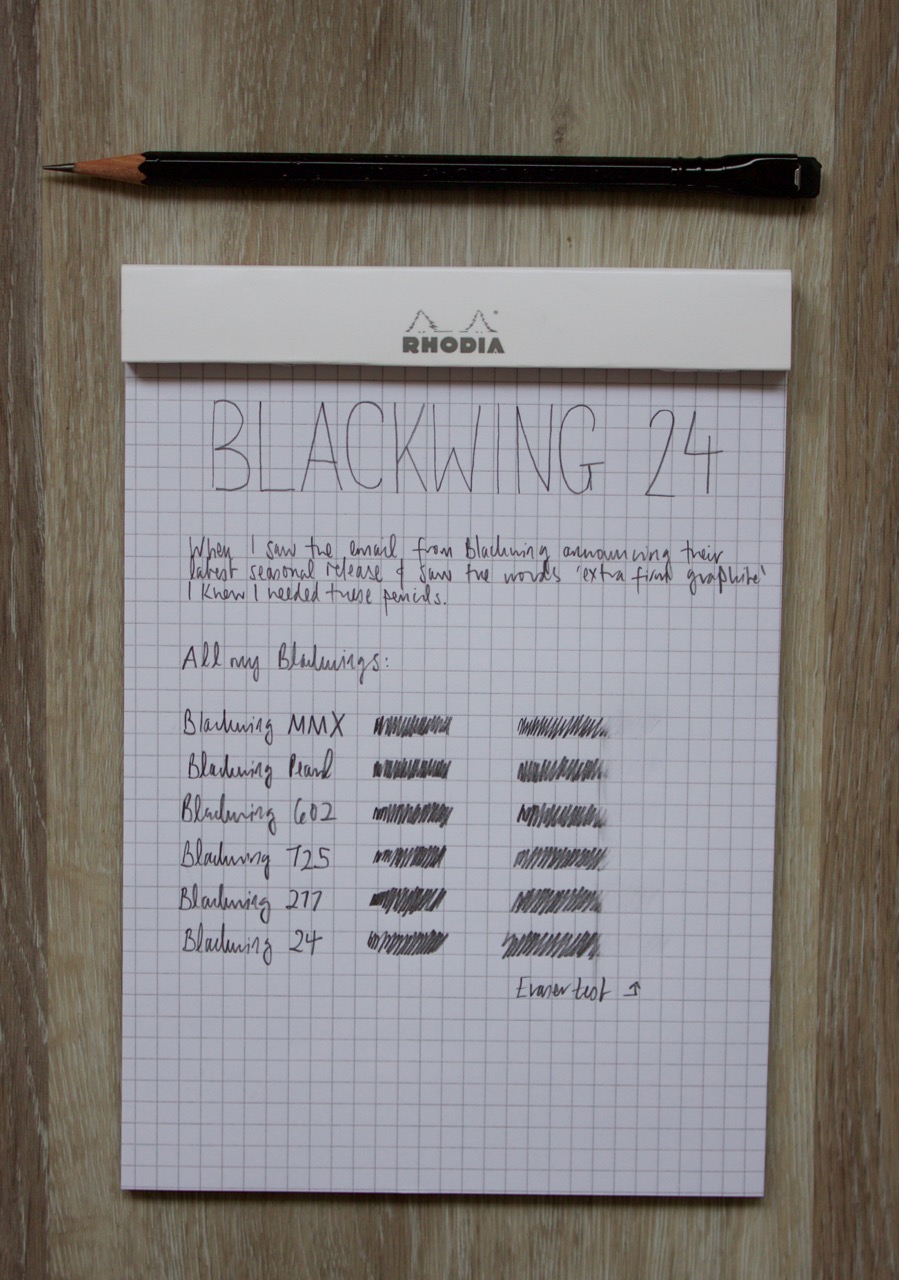 RHODIA
BLACKWING 24
When I saw the email from Blackwing announcing their
latest seasonal release & saw the words 'extra firm graphite'
I knew I needed these pencils.
All my Blackwings:
Blackwing MMX
Blackwing Pearl
Blackwing 602
Blackwing 725
Blackwing 211
Blackwing 24
Eraser test ↑